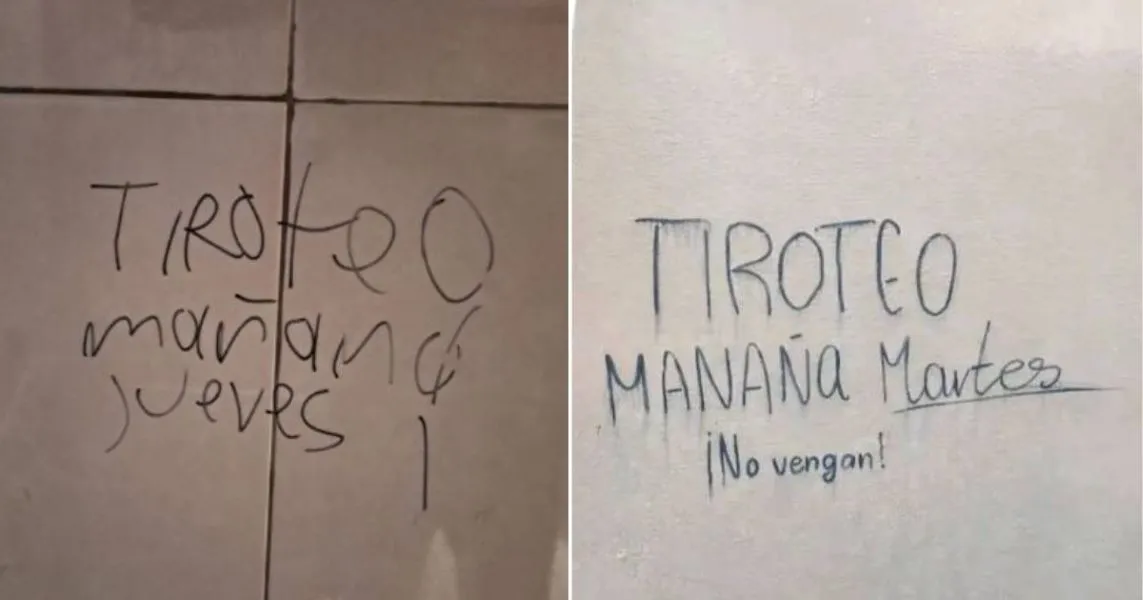 TIROTeO
mañana
jueves
TIROTEO
MANAÑA Martes
¡No vengan!